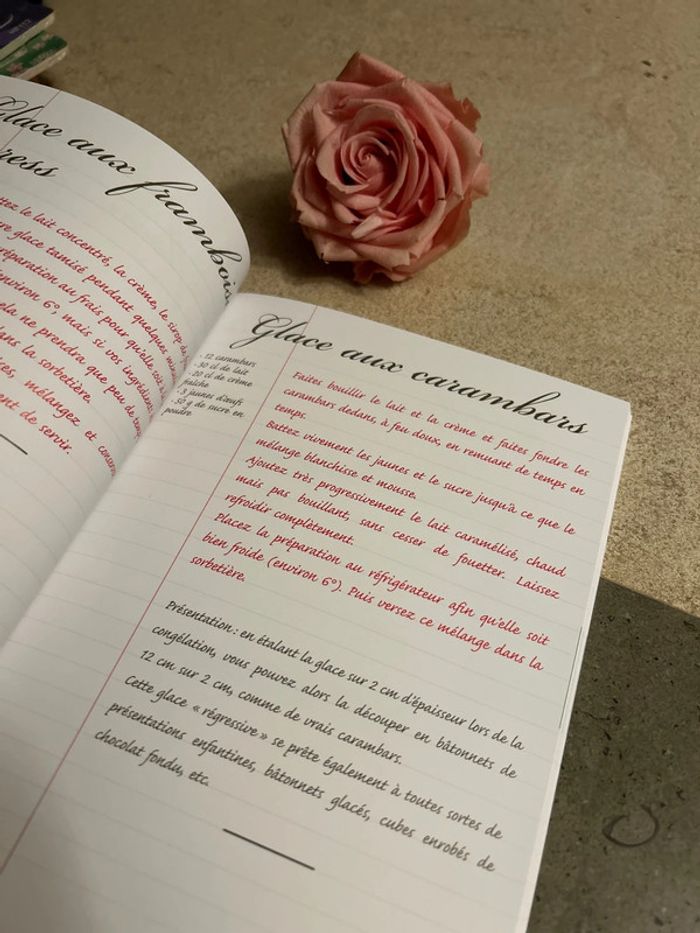 Glace aux framboises
ress
ttez le lait concentré, la crème, le sirop de
re glace tamisé pendant quelques
réparation au frais pour qu'elle soit
environ 6°, mais si vos ingrédients
ela ne prendre que peu de temps
dans la sorbetière.
mélangez et
ent de servir.
Glace aux carambars
- 12 carambars
- 30 cl de lait
- 20 cl de crème
fraîche
- 3 jaunes d'œufs
- 50 g de sucre en
poudre
Faites bouillir le lait et la crème et faites fondre les
carambars dedans, à feu doux, en remuant de temps en
temps.
Battez vivement les jaunes et le sucre jusqu'à ce que le
mélange blanchisse et mousse.
Ajoutez très progressivement le lait caramélisé, chaud
mais pas bouillant, sans cesser de fouetter. Laissez
refroidir complètement.
Placez la préparation au réfrigérateur afin qu'elle soit
bien froide (environ 6°). Puis versez ce mélange dans la
sorbetière.
Présentation : en étalant la glace sur 2 cm d'épaisseur lors de la
congélation, vous pouvez alors la découper en bâtonnets de
12 cm sur 2 cm, comme de vrais carambars.
Cette glace « régressive » se prête également à toutes sortes de
présentations enfantines, bâtonnets glacés, cubes enrobés de
chocolat fondu, etc.